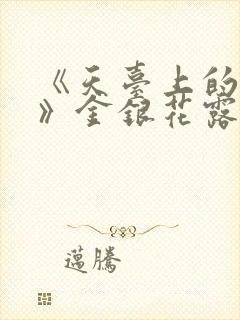 《天臺上的
》金銀花露
邁騰